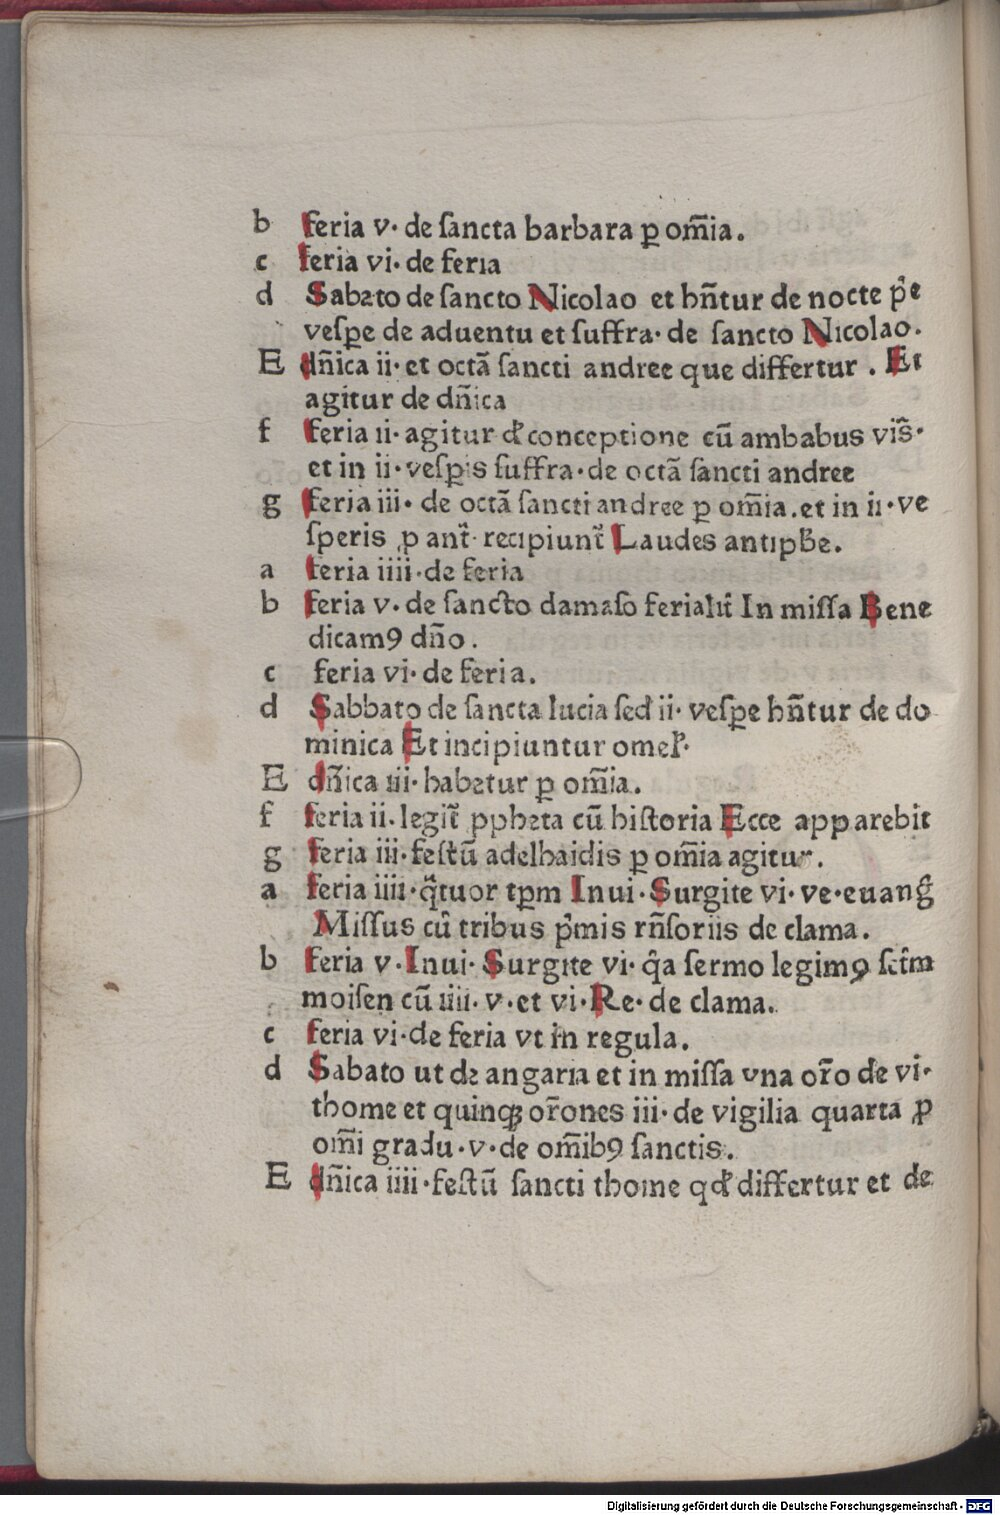 b feria v· de ſancta barbara ꝑ om̄ia.
c feria vi· de feria
d Sabato de ſancto Nicolao et hn̄tur de nocte p̉e
veſꝑe de aduentu et ſuffra· de ſancto Nicolao.
E dn̄ica ii· et octā ſancti andree que differtur . Et
agitur de dn̄ica
f feria ii· agitur đ conceptione cū ambabus viſ̄·
et in ii· veſꝑis ſuffra· de octā ſancti andree
g feria iii· de octā ſancti andree ꝑ om̄ia. et in ii· ve
ſperis ꝓ ant̄· recipiunt̄ Laudes antiph̄e.
a feria iiii· de feria
b feria v· de ſancto damaſo ferialit̄ In miſſa Bene
dicamꝰ dn̄o.
c feria vi· de feria.
d Sabbato de ſancta lucia ſed ii· veſꝑe hn̄tur de do
minica Et incipiuntur omel̉·
E dn̄ica iii· habetur ꝑ om̄ia.
f feria ii· legit̄ ꝓpheta cū hiſtoria Ecce apparebit
g feria iii· feſtū adelhaidis ꝑ om̄ia agitur.
a feria iiii· q̄tuor tꝑm Inui· Surgite vi· ve· euang̉
Miſſus cū tribus p̉mis rn̄ſoriis de clama.
b feria v· Inui· Surgite vi· q̄a ſermo legimꝰ ſct̄m
moiſen cū iiii· v· et vi· Re· de clama.
c feria vi· de feria vt in regula.
d Sabato ut de angaria et in miſſa vna or̄o de vi·
thome et quinqꝫ or̄ones iii· de vigilia quarta ꝓ
om̄i gradu· v· de om̄ibꝰ ſanctis.
E dn̄ica iiii· feſtū ſancti thome qđ differtur et de
Digitalisierung gefördert durch die Deutsche Forschungsgemeinschaft - DFG